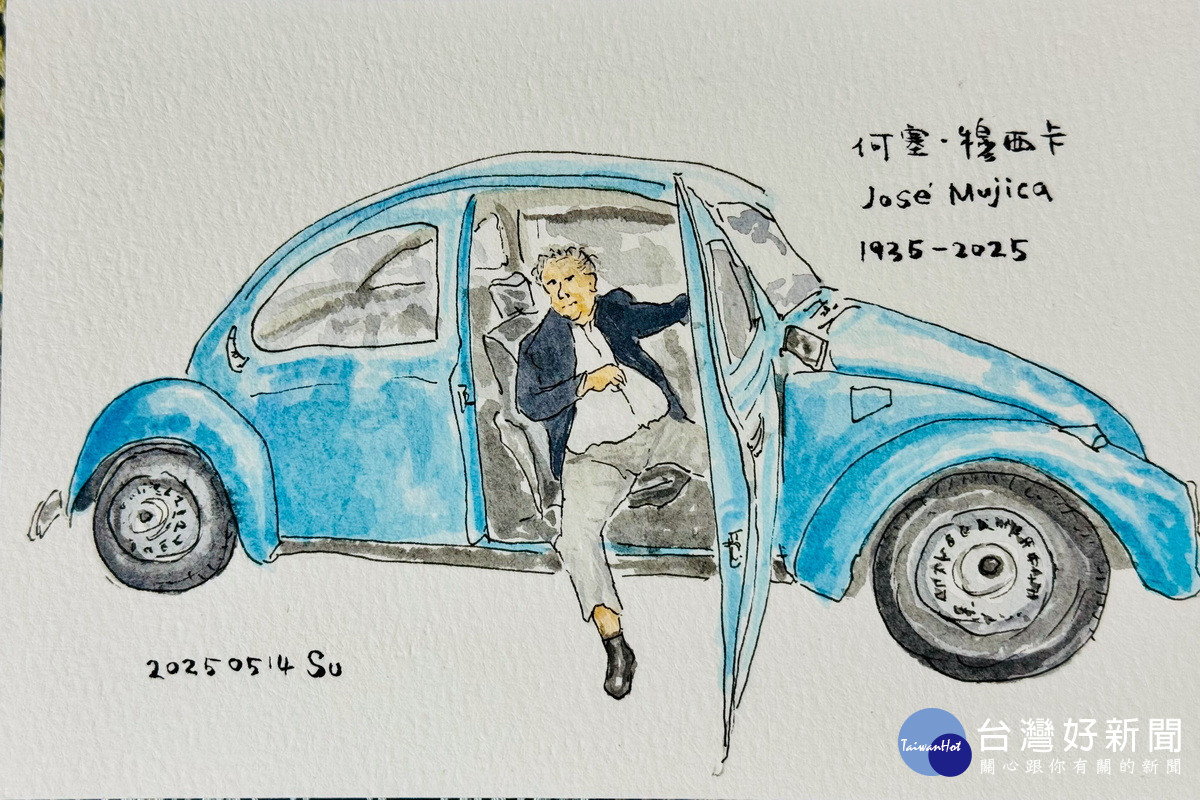 何塞·穆西卡
José Mujica
1935-2025
20250514 Su
TaiwanHot
台灣好新聞
關心跟你有關的新聞